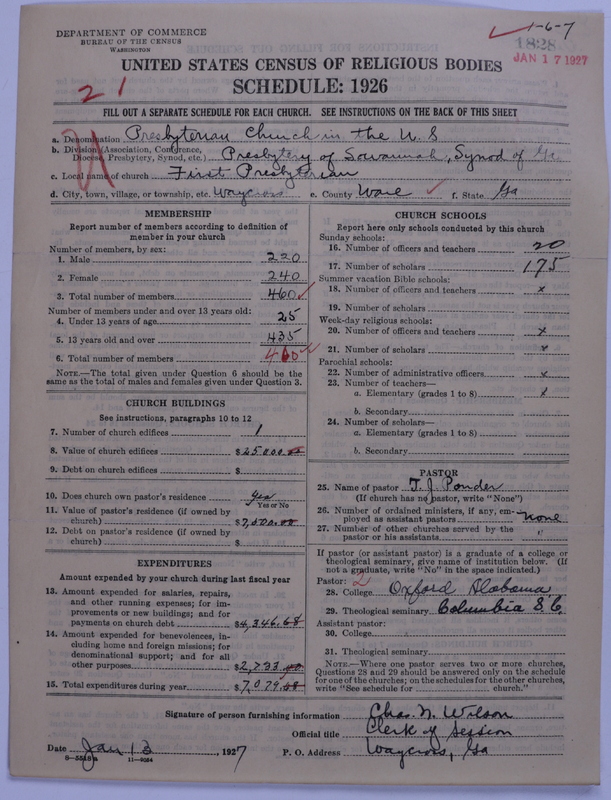 DEPARTMENT OF COMMERCE
BUREAU OF THE CENSUS
WASHINGTON
1-6-7
1828
JAN 17 1927
UNITED STATES CENSUS OF RELIGIOUS BODIES
SCHEDULE: 1926
21
FILL OUT A SEPARATE SCHEDULE FOR EACH CHURCH. SEE INSTRUCTIONS ON THE BACK OF THIS SHEET
a. Denomination Presbyterian Church in the U.S
b. Division (Association, Conference, Diocese, Presbytery, Synod, etc.) Presbytery of Savannah, Synod of Ga.
c. Local name of church First Presbyterian
d. City, town, village, or township, etc. Waycross e. County Ware f. State Ga
MEMBERSHIP
Report number of members according to definition of
member in your church
Number of members, by sex:
1. Male 220
2. Female 240
3. Total number of members 460
Number of members under and over 13 years old:
4. Under 13 years of age 25
5. 13 years old and over 435
6. Total number of members 460
NOTE.—The total given under Question 6 should be
same as the total of males and females given under Question 3.
CHURCH BUILDINGS
See instructions, paragraphs 10 to 12
7. Number of church edifices 1
8. Value of church edifices $25000.00
9. Debt on church edifices $
10. Does church own pastor's residence Yes
Yes or No
11. Value of pastor's residence (if owned by
church) $7,500.00
12. Debt on pastor's residence (if owned by
church) $
EXPENDITURES
Amount expended by church during last fiscal year
13. Amount expended for salaries, repairs,
and other running expenses; for im-
provements or new buildings; and for
payments on church debt $4,346.68
14. Amount expended for benevolences, in-
cluding home and foreign missions; for
denominational support; and for all
other purposes $2,733.00
15. Total expenditures during year $7,079.68
CHURCH SCHOOLS
Report here only schools conducted by this church
Sunday schools:
16. Number of officers and teachers 20
17. Number of scholars 175
Summer vacation Bible schools:
18. Number of officers and teachers x
19. Number of scholars
Week-day religious schools:
20. Number of officers and teachers x
21. Number of scholars x
Parochial schools:
22. Number of administrative officers x
23. Number of teachers—
a. Elementary (grades 1 to 8) x
b. Secondary
24. Number of scholars—
a. Elementary (grades 1 to 8)
b. Secondary
PASTOR
25. Name of pastor T. J. Ponder
(If church has no pastor, write "None")
26. Number of ordained ministers, if any, em-
ployed as assistant pastors none
27. Number of other churches served by the
pastor or his assistants "
If pastor (or assistant pastor) is a graduate of a college or
theological seminary, give name of institution below. (If
not a graduate, write "No" in the space indicated.)
Pastor: 2
28. College Oxford Alabama
29. Theological seminary Columbia S.C
Assistant pastor:
30. College
31. Theological seminary
NOTE.—Where one pastor serves two or more churches,
Questions 28 and 29 should be answered only on the schedule
for one of the churches; on the schedules for the other churches,
write "See schedule for church."
Signature of person furnishing information Chas. N. Wilson
Official title Clerk of Session
Date Jan 13, 1927 P. O. Address Waycross, Ga
8-5518a 11-9064